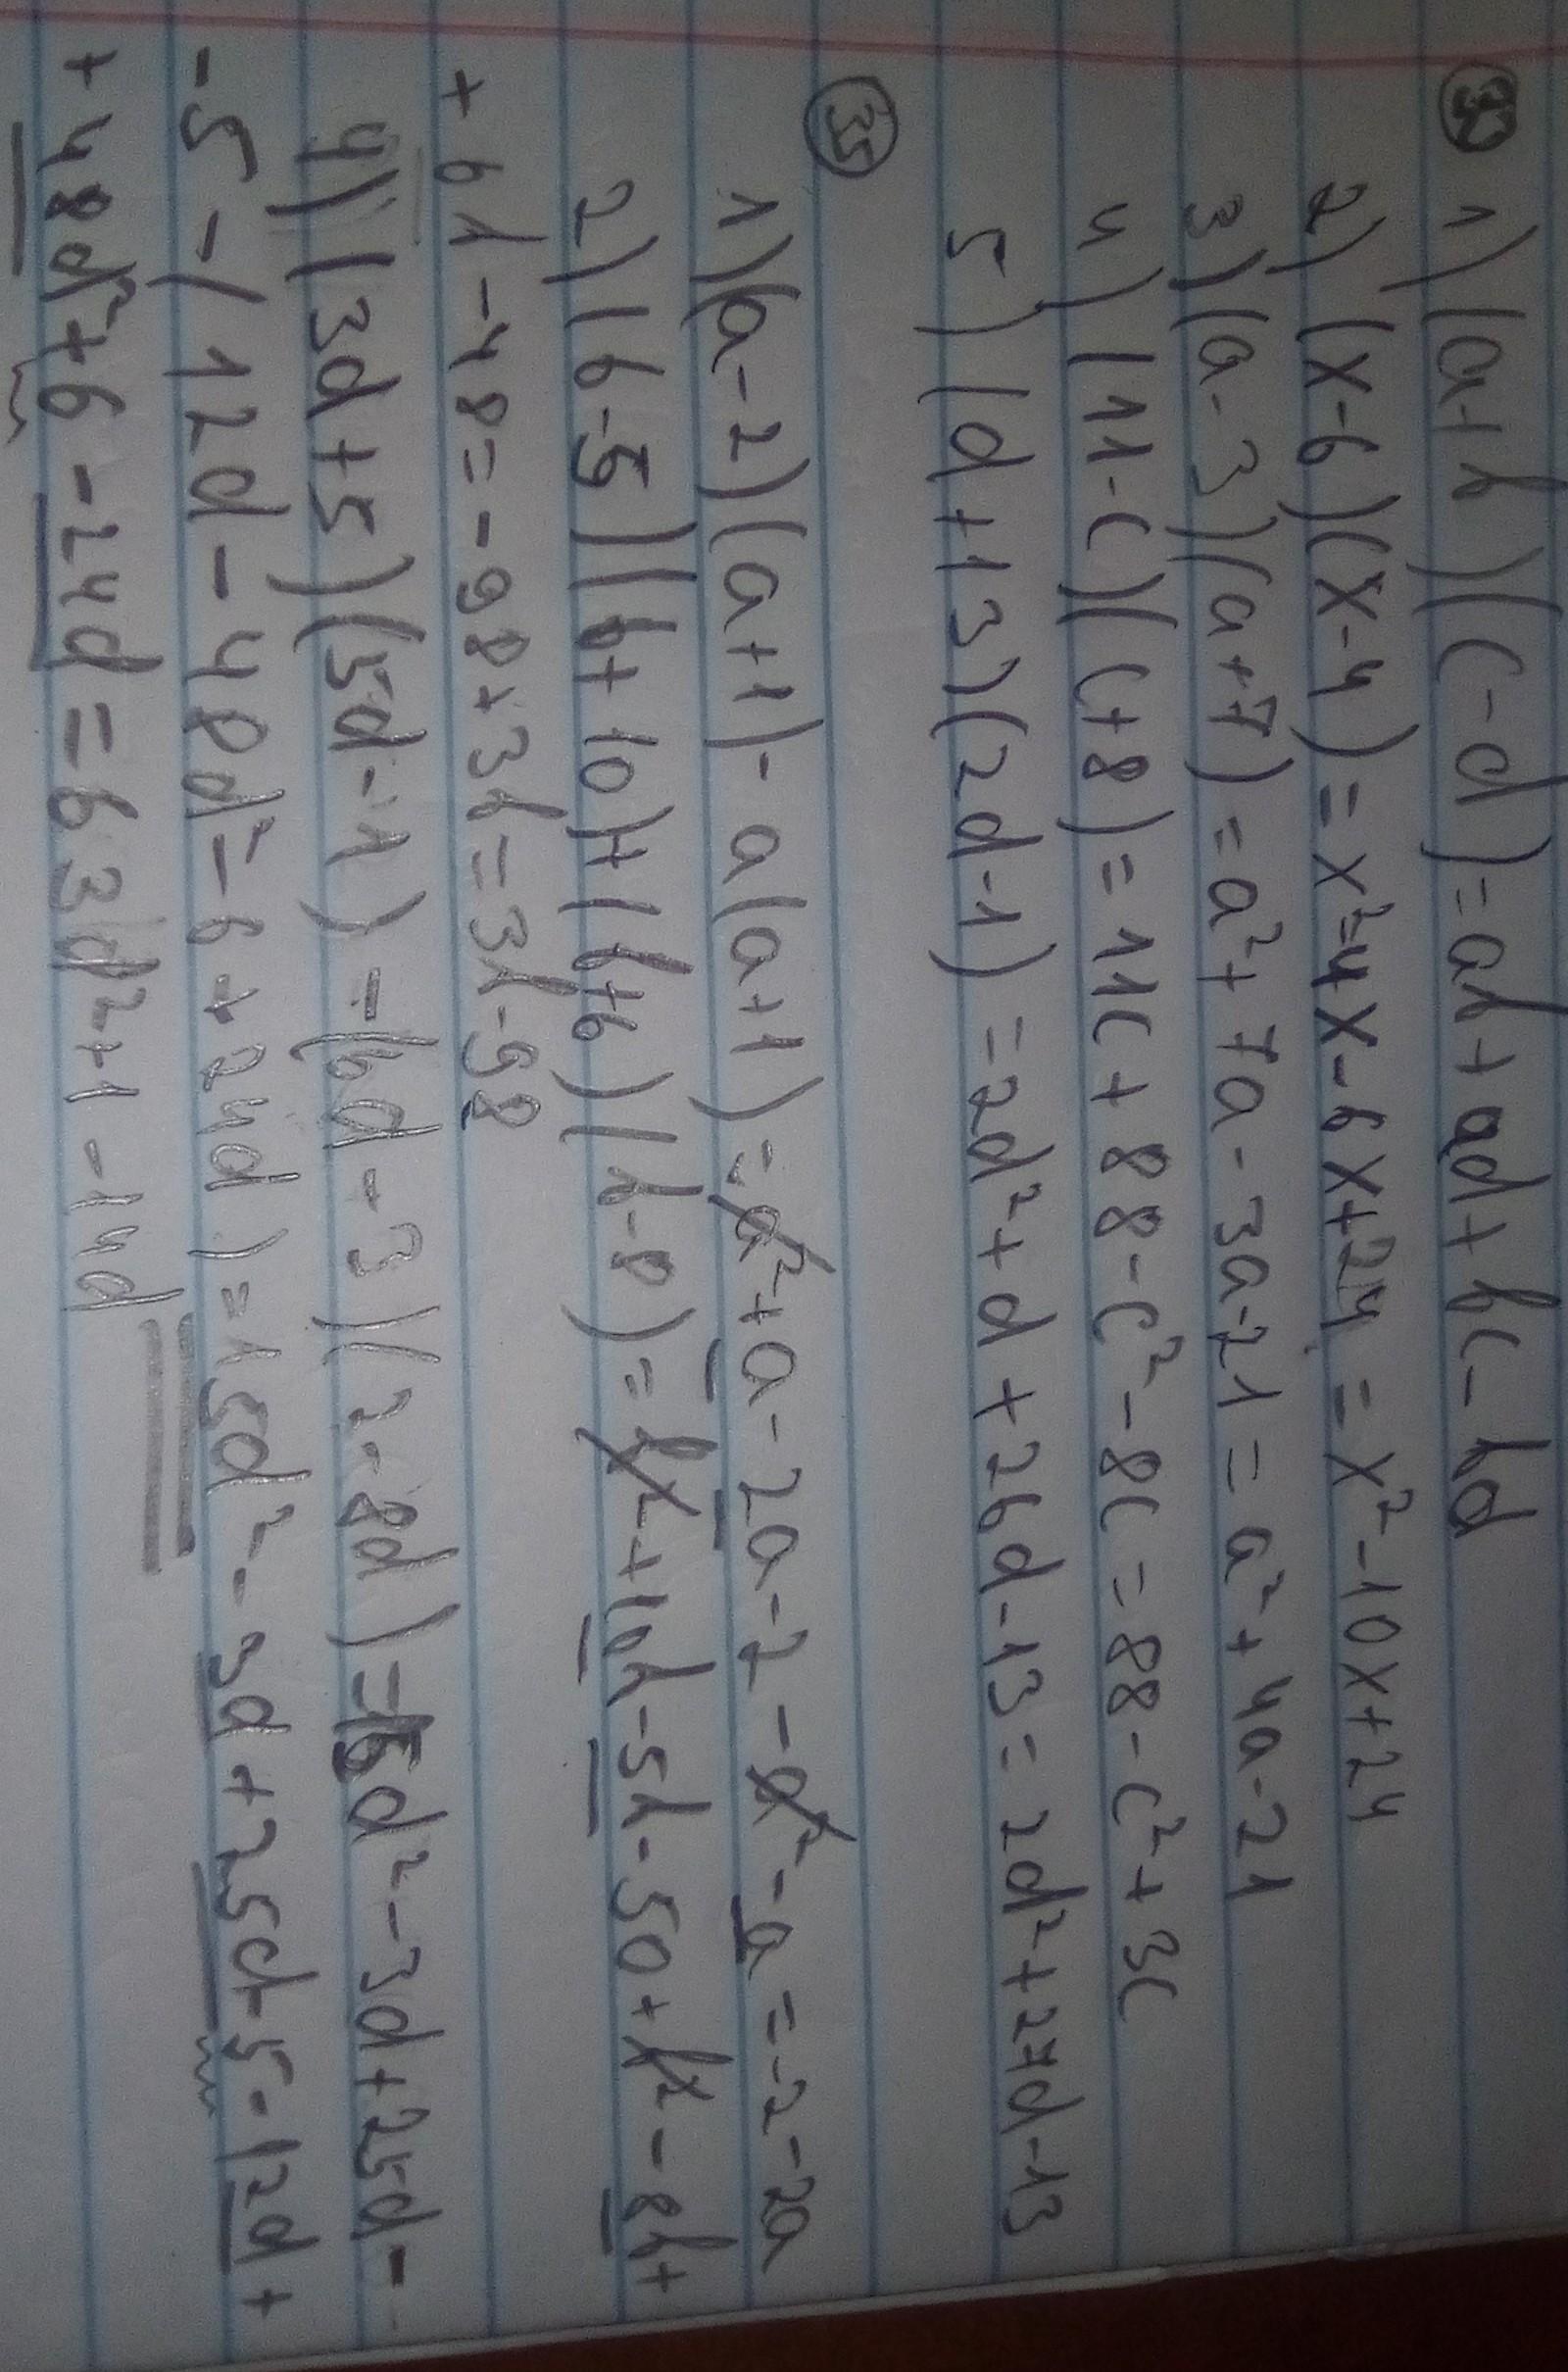 1) (a+b)(c-d)=ab+ad+bc-bd
2) (x-6)(x-4)=x²-4x-6x+24=x²-10x+24
3) (a-3)(a+7)=a²+7a-3a-21=a²+4a-21
4) (11-c)(c+8)=11c+88-c²-8c=88-c²+3c
5) (d+13)(2d-1)=2d²+d+26d-13=2d²+27d-13
35
1) (a-2)(a+1)-a(a+1)=a²+a-2a-2-a²-a=-2-2a
2) (b-5)(b+10)+(b+6)(b-8)=b²+10b-5b-50+b²-8b+
+6b-48=-98+3b=3b-98
4) (3d+5)(5d-1)-(6d-3)(2-8d)=15d²-3d+25d-
-5-(12d-48d²-6+24d)=15d²-3d+25d-5-12d+
+48d²+6-24d=63d²+1-14d